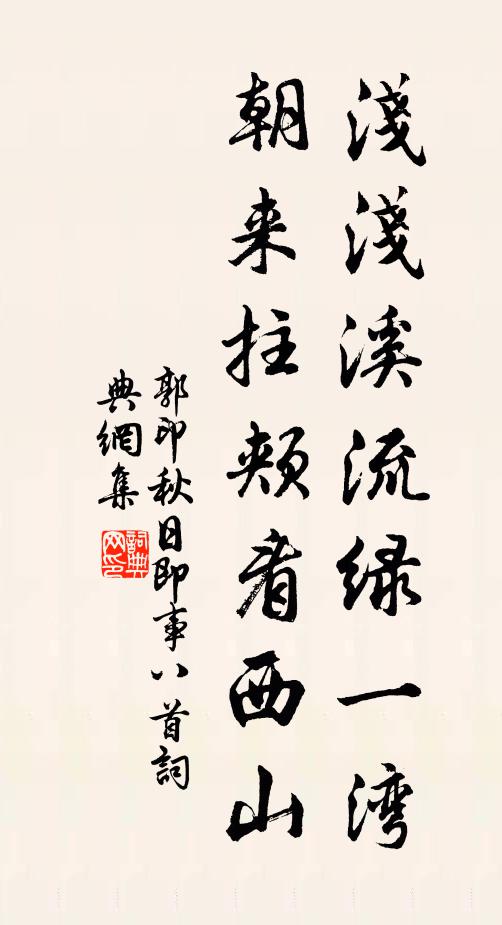 淺淺溪流绿一湾
朝来拄頰看西山
郭印秋日即事八首詞
典網集
詞典网印